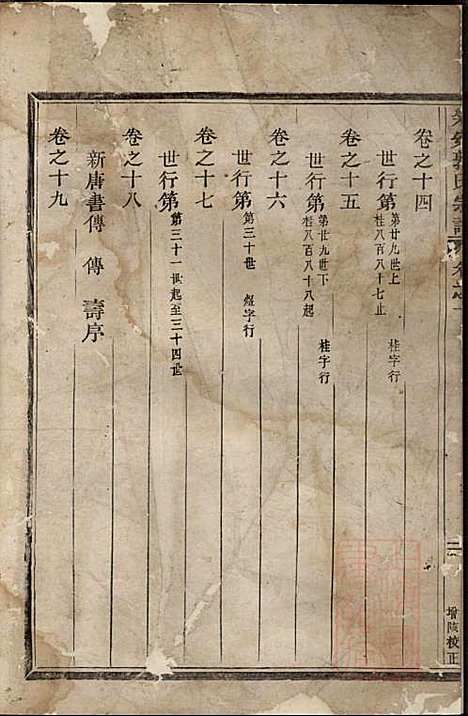 卷之十四
世行第 第廿九世上 桂八百八十七止 桂字行
卷之十五
世行第 第廿九世下 桂八百八十八起 桂字行
卷之十六
世行第 第三十世 煜字行
卷之十七
世行第 第三十一世起至三十四世
卷之十八
新唐書傳 傳 壽序
卷之十九
氏宗譜 卷之一
二
增陔校正